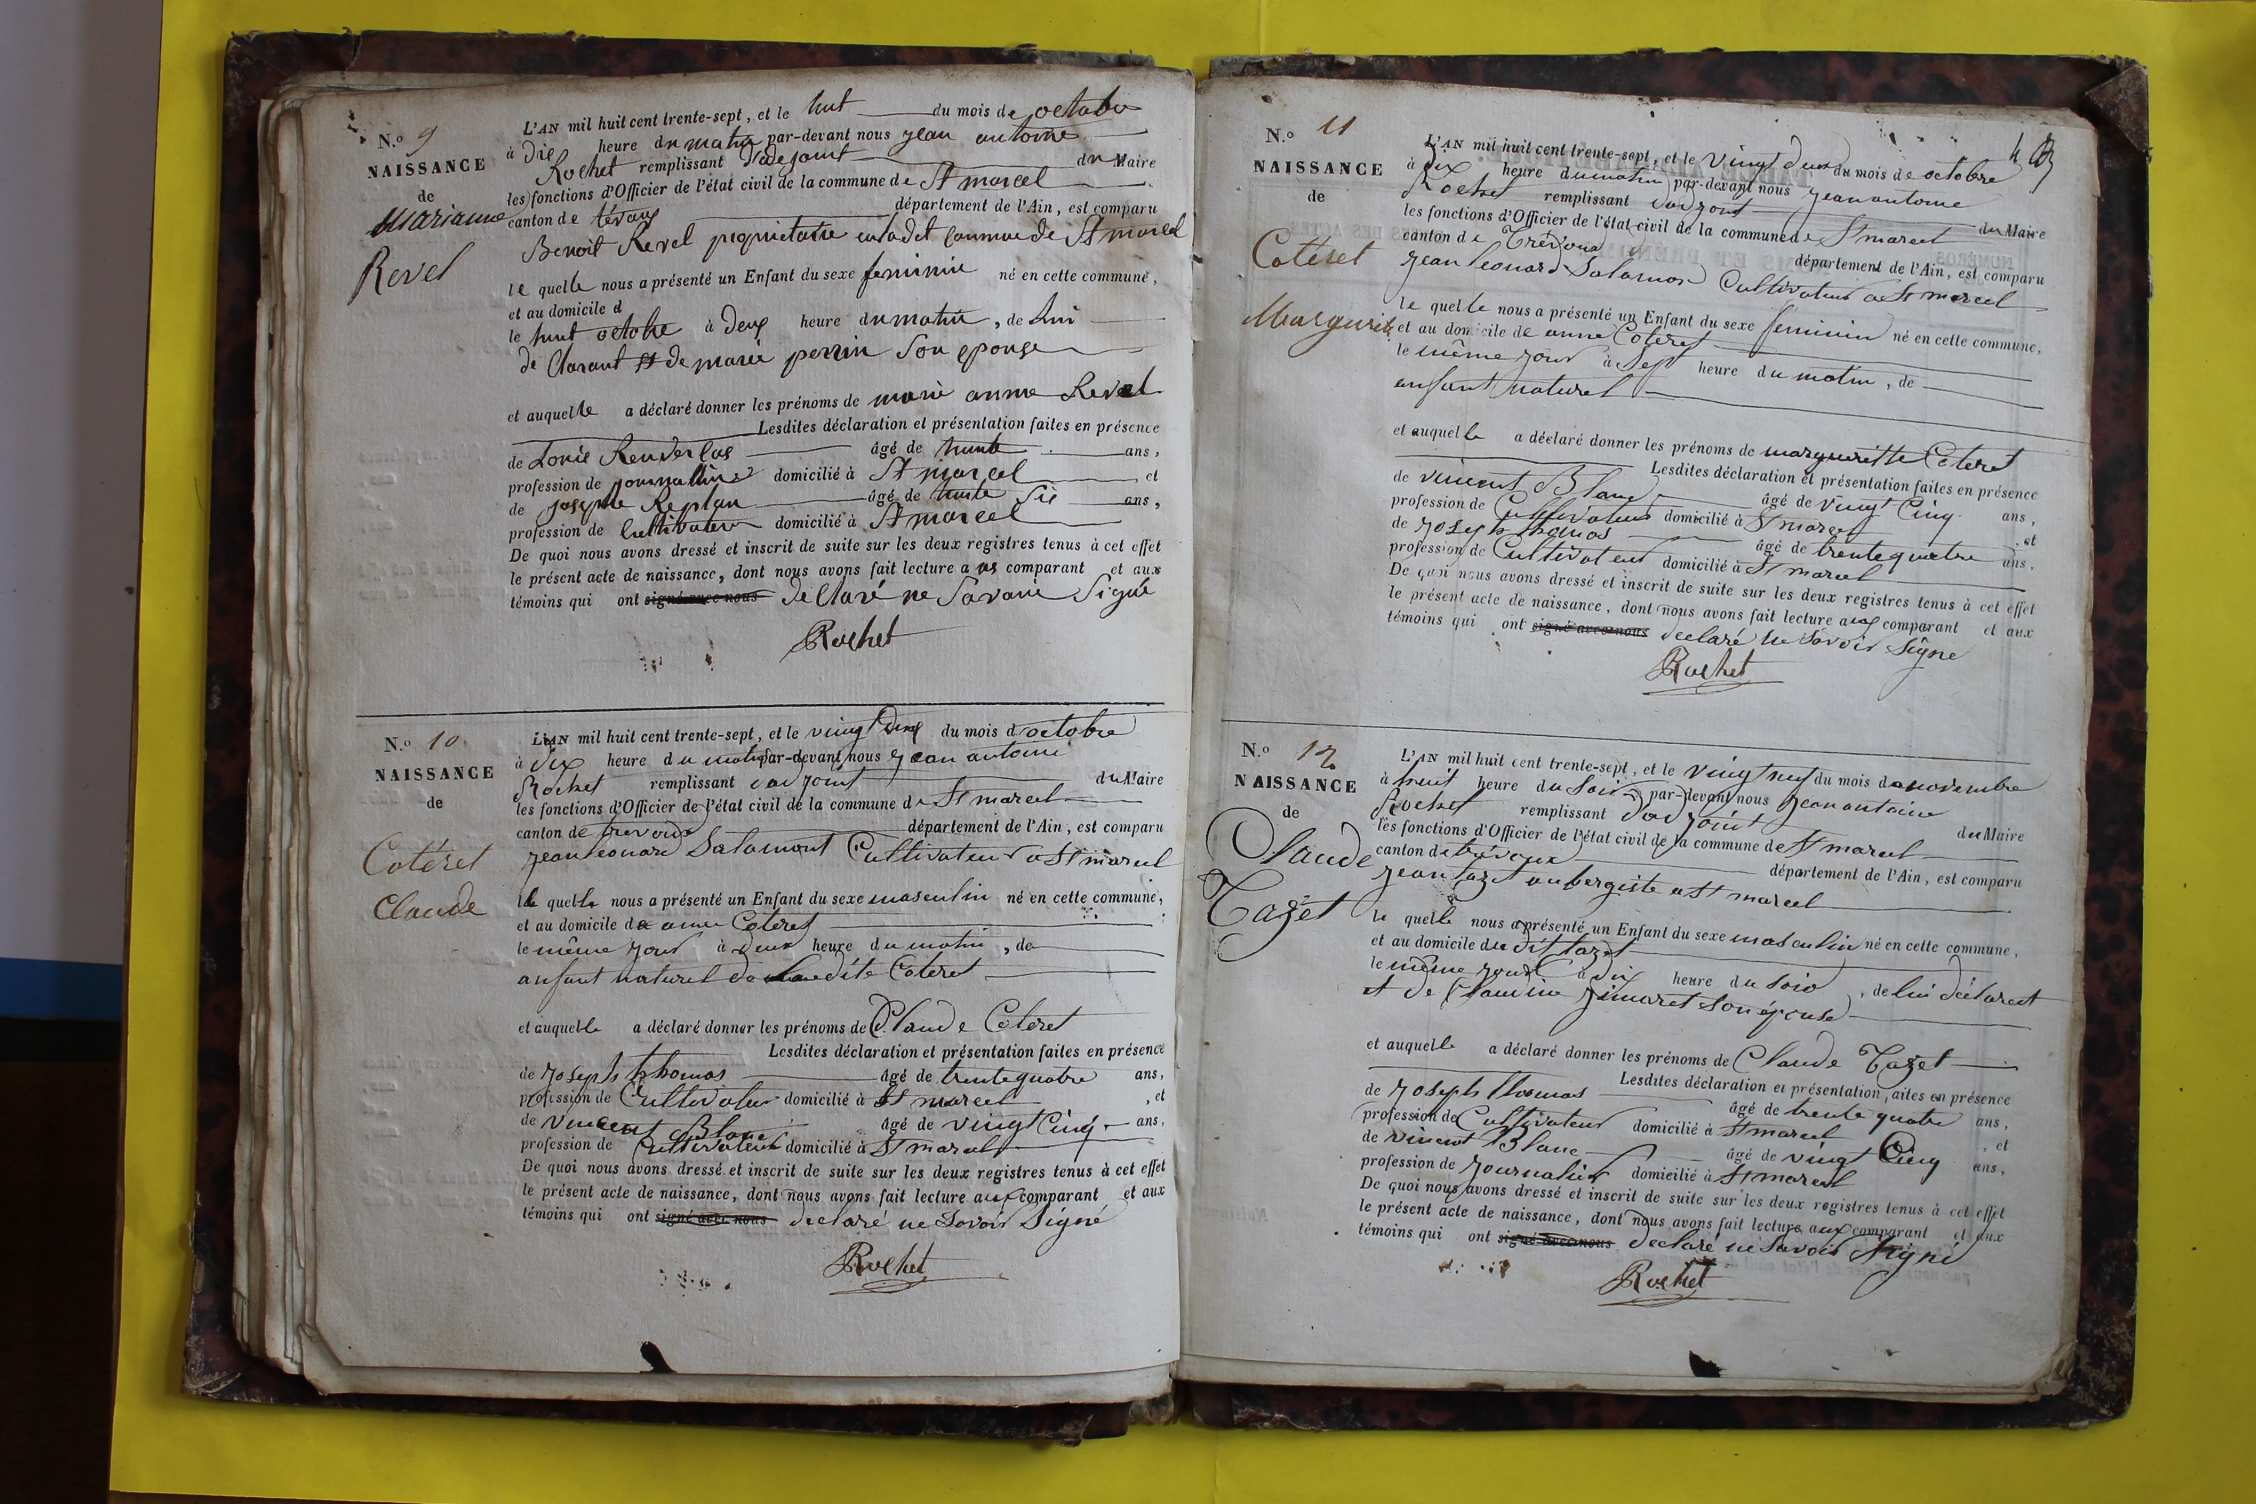 N.o 9
NAISSANCE
de
Marianne
Revel
L'AN mil huit cent trente-sept, et le huit du mois de octobre
à dix heure du matin par-devant nous jean antoine
Rochet remplissant d'adejoint du Maire
les fonctions d'Officier de l'état civil de la commune de St marcel
canton de tévoux département de l'Ain, est comparu
Benoit Revel propriétaire en ladit commune de St marcel
le quelle nous a présenté un Enfant du sexe feminin né en cette commune,
et au domicile d
le huit octobre à deux heure du matin, de lui
de Clarant et de marie perrin Son epouse
et auquelle a déclaré donner les prénoms de marie anne Revel
Lesdites déclaration et présentation faites en présence
de Louis âgé de trente ans,
profession de journallier domicilié à St marcel et
de josephe Replan âgé de trente Six ans,
profession de Cultivateur domicilié à St marcel
De quoi nous avons dressé et inscrit de suite sur les deux registres tenus à cet effet
le présent acte de naissance, dont nous avons fait lecture a us comparant et aux
témoins qui ont signé avec nous declaré ne Savoir Signé
Rochet
N.o 10
NAISSANCE
de
Cotéret
Claude
L'AN mil huit cent trente-sept, et le vingt deux du mois d'octobre
à dix heure du matin par-devant nous jean antoine
Rochet remplissant d'adjoint du Maire
les fonctions d'Officier de l'état civil de la commune de St marcel
canton de trevoux département de l'Ain, est comparu
jean leonard Salamont Cultivateur a St marcel
le quelle nous a présenté un Enfant du sexe masculin né en cette commune,
et au domicile de anne Coteret
le même jour à deux heure du matin, de
enfant naturel de laditte Coteret
et auquelle a déclaré donner les prénoms de Claude Coteret
Lesdites déclaration et présentation faites en présence
de joseph thomas âgé de trente quatre ans,
profession de Cultivateur domicilié à St marcel, et
de vincent Blanc âgé de vingt Cinq ans,
profession de Cultivateur domicilié à St marcel
De quoi nous avons dressé et inscrit de suite sur les deux registres tenus à cet effet
le présent acte de naissance, dont nous avons fait lecture aux comparant et aux
témoins qui ont signé avec nous declaré ne Savoir Signé
Rochet
4
N.o 11
NAISSANCE
de
Cotéret
Margurite
L'AN mil huit cent trente-sept, et le vingt deux du mois de octobre
à dix heure du matin par-devant nous jean antoine
Rochet remplissant d'adjoint du Maire
les fonctions d'Officier de l'état civil de la commune de St marcel
canton de Trévoux département de l'Ain, est comparu
jean leonard Salamon Cultivateur a St marcel
le quelle nous a présenté un Enfant du sexe feminin né en cette commune,
et au domicile de anne Coteret
le même jour à Sept heure du matin, de
enfant naturel
et auquelle a déclaré donner les prénoms de margueritte Coteret
Lesdites déclaration et présentation faites en présence
de vincent Blanc âgé de vingt Cinq ans,
profession de Cultivateur domicilié à St marcel, et
de joseph thomas âgé de trente quatre ans,
profession de Cultivateur domicilié à St marcel
De quoi nous avons dressé et inscrit de suite sur les deux registres tenus à cet effet
le présent acte de naissance, dont nous avons fait lecture aux comparant et aux
témoins qui ont signé avec nous declaré ne Savoir Signé
Rochet
N.o 12
NAISSANCE
de
Claude
Tazet
L'AN mil huit cent trente-sept, et le vingt neuf du mois de novembre
à huit heure du Soir par-devant nous jean antoine
Rochet remplissant d'adjoint du Maire
les fonctions d'Officier de l'état civil de la commune de St marcel
canton de trévoux département de l'Ain, est comparu
jean tazet aubergiste a St marcel
le quelle nous a présenté un Enfant du sexe masculin né en cette commune,
et au domicile du dit tazet
le même jour à dix heure du Soir, de lui déclarent
et de Claudine jimaret Son épouse
et auquelle a déclaré donner les prénoms de Claude Tazet
Lesdites déclaration et présentation faites en présence
de joseph thomas âgé de trente quatre ans,
profession de Cultivateur domicilié à St marcel, et
de vincent Blanc âgé de vingt Cinq ans,
profession de journalier domicilié à St marcel
De quoi nous avons dressé et inscrit de suite sur les deux registres tenus à cet effet
le présent acte de naissance, dont nous avons fait lecture aux comparant et aux
témoins qui ont signé avec nous declaré ne Savoir Signé
Rochet